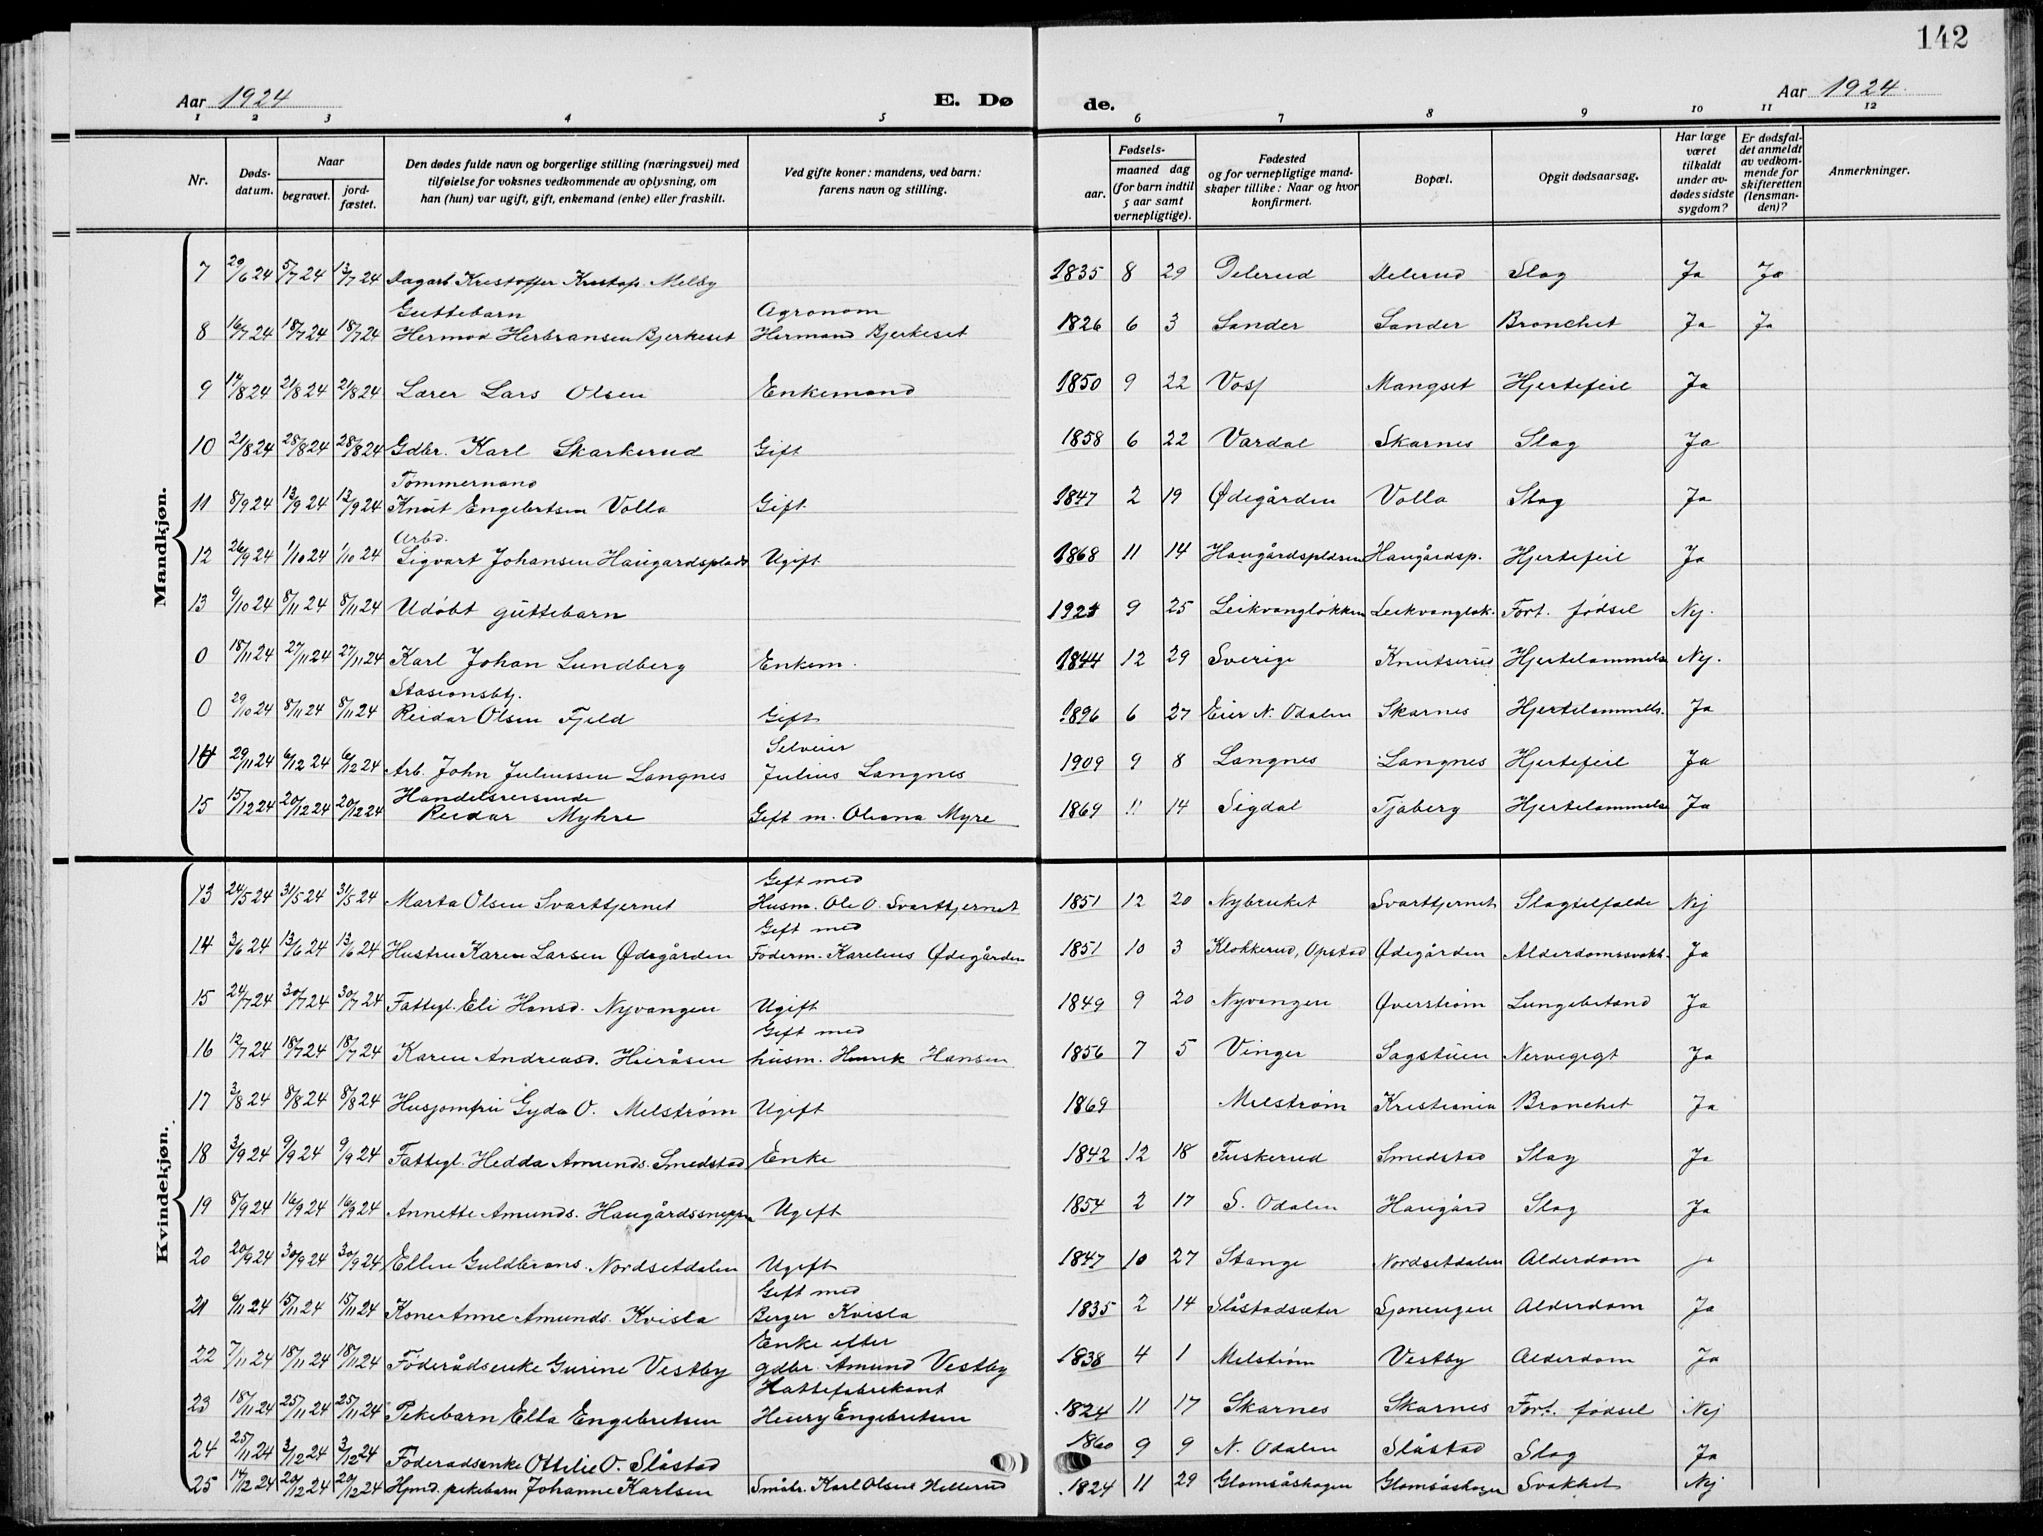 142
Aar 1924
E. Dø
de.
Aar 1924
1 2 3 4 5 6 7 8 9 10 11 12
Nr.
Døds-
datum.
Naar
begravet.
jord-
fæstet.
Den dødes fulde navn og borgerlige stilling (næringsvei) med
tilføielse for voksnes vedkommende av oplysning, om
han (hun) var ugift, gift, enkemand (enke) eller fraskilt.
Ved gifte koner: mandens, ved barn:
farens navn og stilling.
Fødsels-
aar.
maaned dag
(for barn indtil
5 aar samt
vernepligtige).
Fødested
og for vernepligtige mand-
skaper tillike: Naar og hvor
konfirmert.
Bopæl.
Opgit dødsaarsag.
Har læge
været
tilkaldt
under av-
dødes sidste
sygdom?
Er dødsfal-
det anmeldt
av vedkom-
mende for
skifteretten
(lensman-
den)?
Anmerkninger.
Mandkjøn.
7 29/6 24 5/7 24 13/7 24 Dagarb. Kristoffer Kristof. Melby 1835 8 29 Delerud Delerud Slag Ja Ja
Guttebarn Agronom
8 16/7 24 18/7 24 18/7 24 Hermod Herbransen Bjerkeset Hermand Bjerkeset 1826 6 3 Sander Sander Bronchet Ja Ja
9 17/8 24 21/8 24 21/8 24 Lærer Lars Olsen Enkemand 1850 9 22 Voss Mangset Hjertefeil Ja
10 21/8 24 28/8 24 28/8 24 Gdbr. Karl Skarkerud Gift 1858 6 22 Vardal Skarnes Slag Ja
Tømmermand
11 8/9 24 13/9 24 13/9 24 Knut Engebretsen Volla Gift 1847 2 19 Ødegården Volla Slag Ja
Arbd.
12 26/9 24 1/10 24 1/10 24 Sigvart Johansen Haugardsplads Ugift 1868 11 14 Haugårdspladsen Haugårdsp. Hjertefeil Ja
13 9/10 24 8/11 24 8/11 24 Udøbt guttebarn 1924 9 25 Leikvangløkken Leikvangløk. Fort. fødsel Nej.
0 18/11 24 27/11 24 27/11 24 Karl Johan Lundberg Enkem. 1844 12 29 Sverige Knutserud Hjertelammelse Nej.
Stasionsbtj.
0 29/10 24 8/11 24 8/11 24 Reidar Olsen Fjeld Gift 1896 6 27 Eier N. Odalen Skarnes Hjertelammels. Ja
Selveier
14 29/11 24 6/12 24 6/12 24 Arb. John Juliussen Langnes Julius Langnes 1909 9 8 Langnes Langnes Hjertefeil Ja
Handelsreisende
15 15/12 24 20/12 24 20/12 24 Reidar Myhre Gift m. Oliana Myre 1869 11 14 Sigdal Tjaberg Hjertelammelse Ja
Kvindekjøn.
Gift med
13 24/5 24 31/5 24 31/5 24 Marta Olsen Svarttjernet Husm. Ole O. Svarttjernet 1851 12 20 Nybruket Svarttjernet Slagtilfælde Nej
Gift med
14 3/6 24 13/6 24 13/6 24 Hustru Karen Larsen Ødegården Føderm. Karelius Ødegården 1851 10 3 Klokkerud, Opstad Ødegården Alderdomssvakh. Ja
15 24/7 24 30/7 24 30/7 24 Fattigl. Eli Hansd. Nyvangen Ugift 1849 9 20 Nyvangen Øverstrøm Lungebetænd Ja
Gift med
16 12/7 24 18/7 24 18/7 24 Karen Andreasd. Hieråsen husm. Henrik Hansen 1856 7 5 Vinger Sagstuen Nervegigt Ja
17 3/8 24 8/8 24 8/8 24 Husjomfru Gyda O. Melstrøm Ugift 1869 Melstrøm Kristiania Bronchet Ja
18 3/9 24 9/9 24 9/9 24 Fattigl. Hedda Amunds. Smedstad Enke 1842 12 18 Fuskerud Smedstad Slag Ja
19 8/9 24 16/9 24 16/9 24 Annette Amunds. Haugårdssneppen Ugift 1854 2 17 S. Odalen Haugård Slag Ja
20 20/9 24 30/9 24 30/9 24 Ellen Guldbrans. Nordsetdalen Ugift 1847 10 27 Stange Nordsetdalen Alderdom ja
Gift med
21 6/11 24 15/11 24 15/11 24 Kone Anne Amunds. Kvisla Berger Kvisla 1835 2 14 Slåstadsæter Sjoningen Alderdom Ja
Enke efter
22 7/11 24 18/11 24 18/11 24 Føderådsenke Gurine Vestby gdbr. Amund Vestby 1838 4 1 Melstrøm Vestby Alderdom Ja
Hattefabrikant
23 18/11 24 25/11 24 25/11 24 Pikebarn Ella Engebretsen Henry Engebretsen 1824 11 17 Skarnes Skarnes Fort. fødsel Nej
24 25/11 24 3/12 24 3/12 24 Føderadsenke Ottilie O. Slåstad 1860 9 9 N. Odalen Slåstad Slag Ja
25 14/12 24 20/12 24 20/12 24 Hjmd. pikebarn Johanne Karlsen Småbr. Karl Olsen Hellerud 1824 11 29 Glomsåskogen Glomsåskogen Svakhet Nej